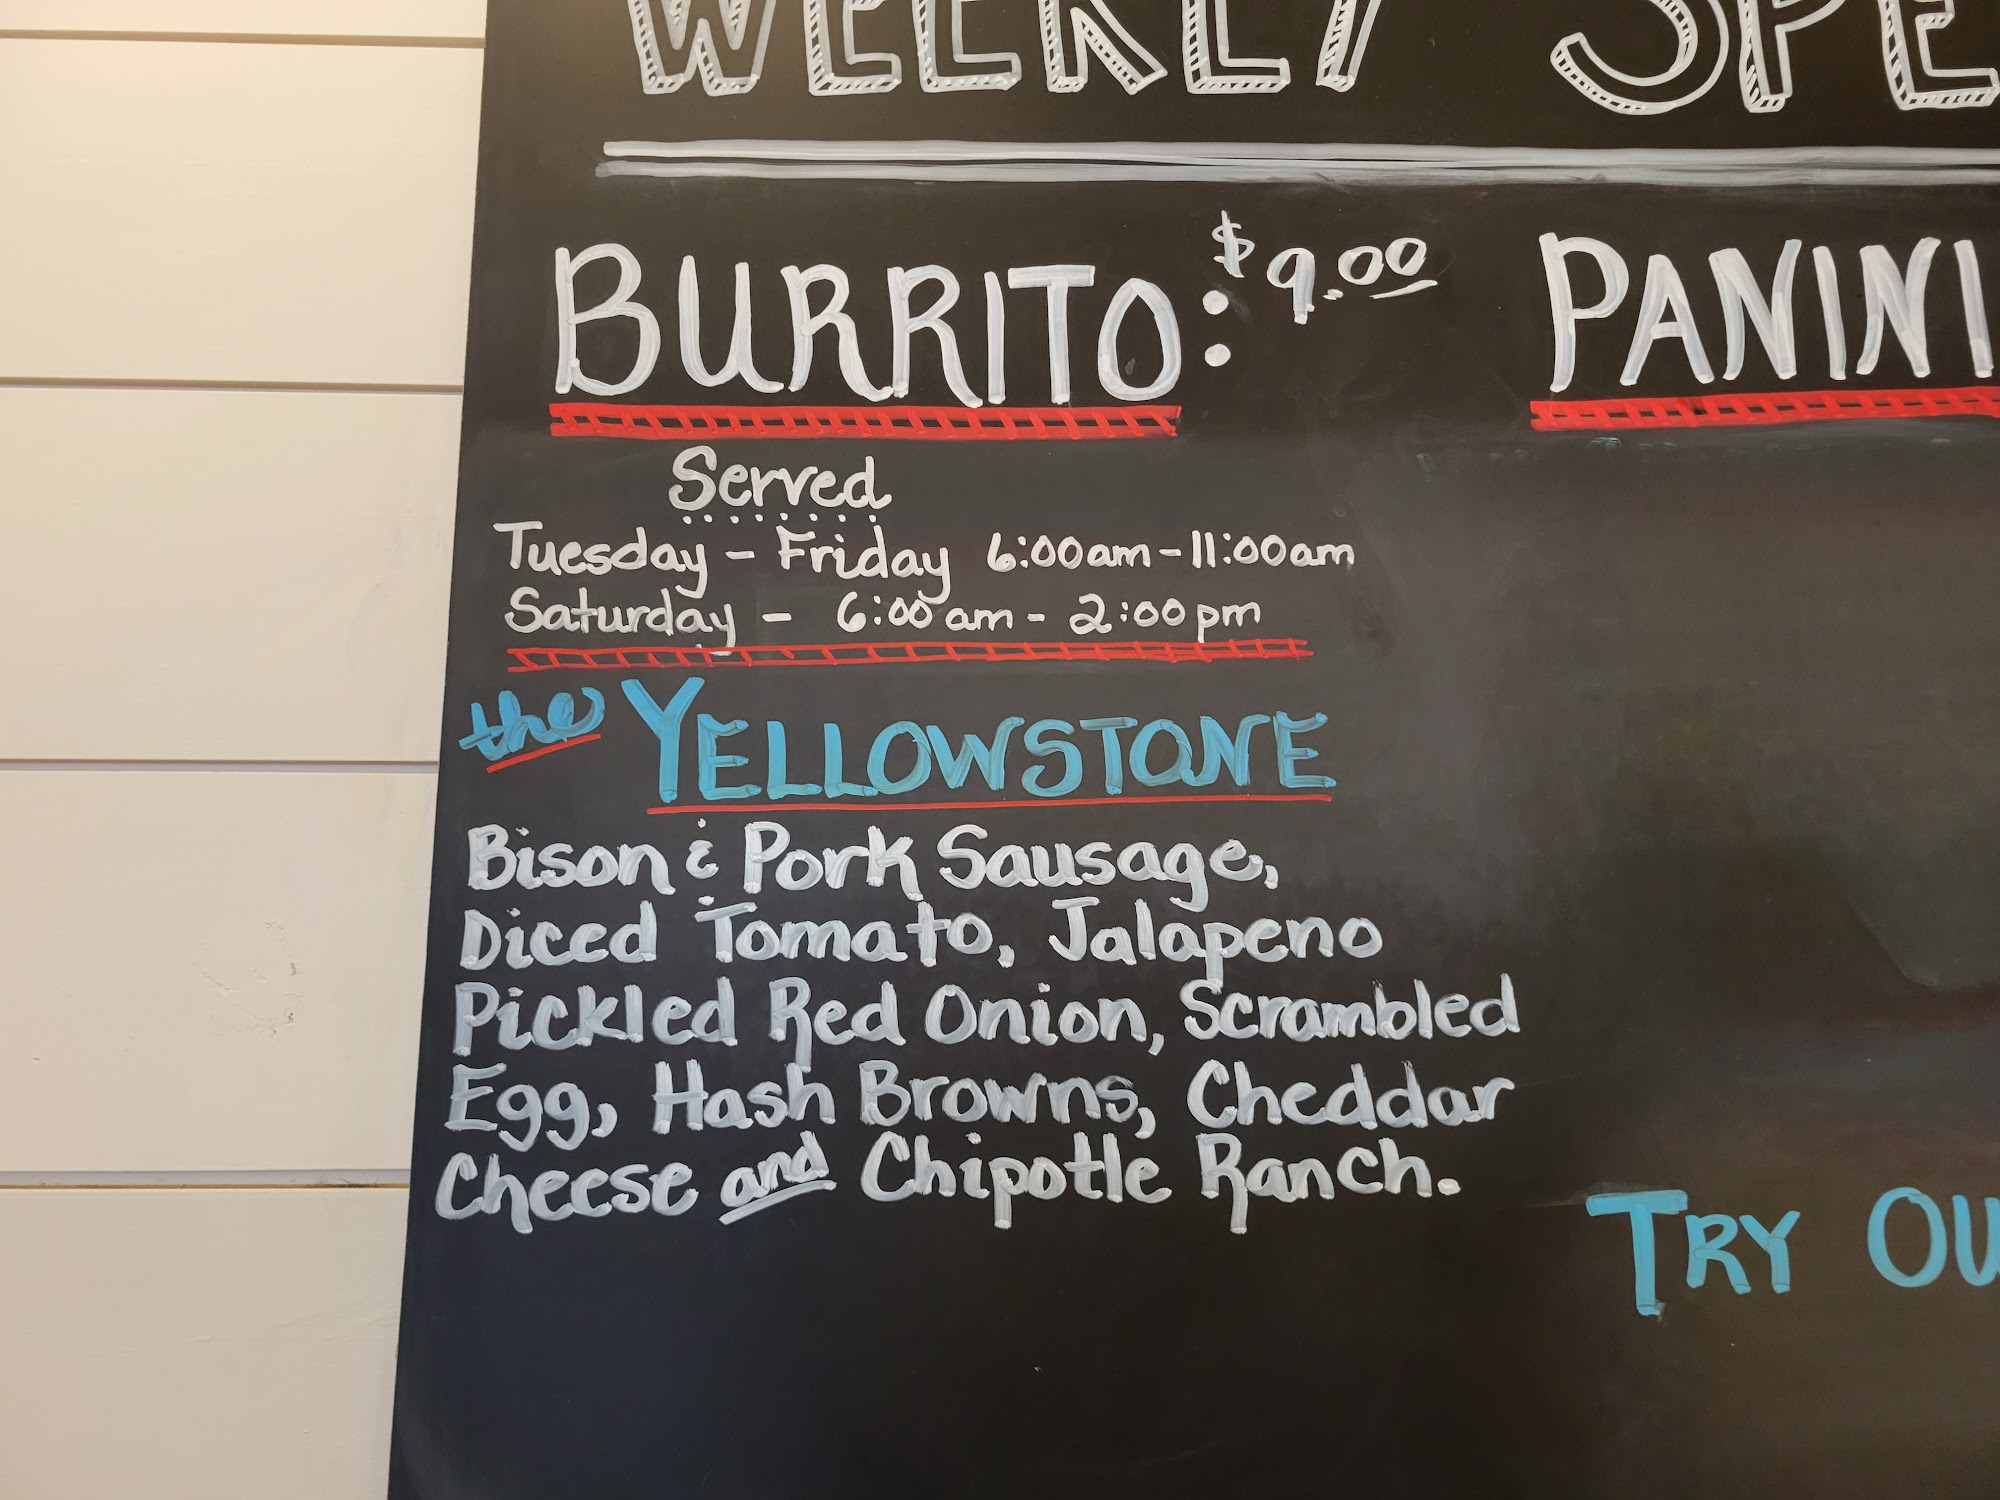 WEEKLY SPE
BURRITO: $9.00
Served
Tuesday - Friday 6:00am - 11:00am
Saturday - 6:00am - 2:00pm
the YELLOWSTONE
Bison & Pork Sausage,
Diced Tomato, Jalapeno
Pickled Red Onion, Scrambled
Egg, Hash Browns, Cheddar
Cheese and Chipotle Ranch.
PANINI
TRY OU